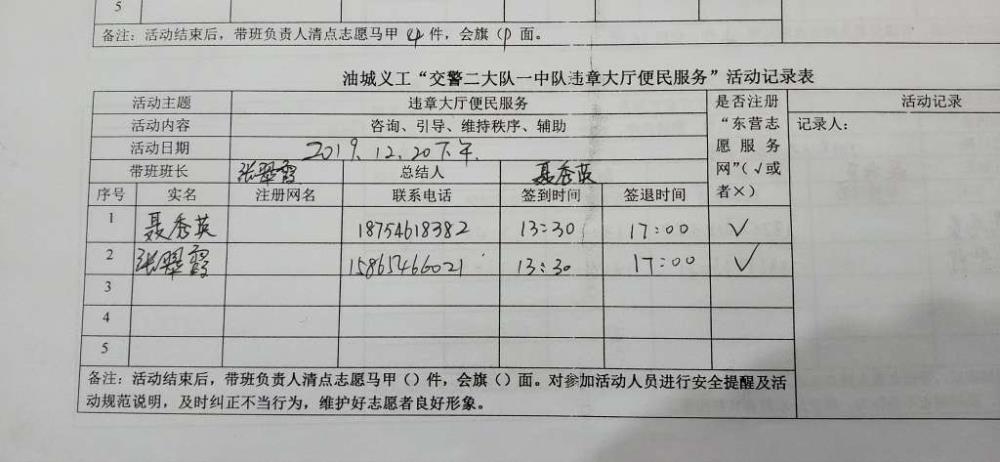 5
备注：活动结束后，带班负责人清点志愿马甲（4件，会旗（1面。
油城义工“交警二大队一中队违章大厅便民服务”活动记录表
活动主题 违章大厅便民服务 是否注册“东营志愿服务网”（√或者×） 活动记录
活动内容 咨询、引导、维持秩序、辅助 记录人：
活动日期 2019.12.20下午.
带班班长 张翠霞 总结人 聂秀英
序号 实名 注册网名 联系电话 签到时间 签退时间
1 聂秀英 18754618382 13:30 17:00 √
2 张翠霞 15865466021 13:30 17:00 √
3
4
5
备注：活动结束后，带班负责人清点志愿马甲（）件，会旗（）面。对参加活动人员进行安全提醒及活
动规范说明，及时纠正不当行为，维护好志愿者良好形象。